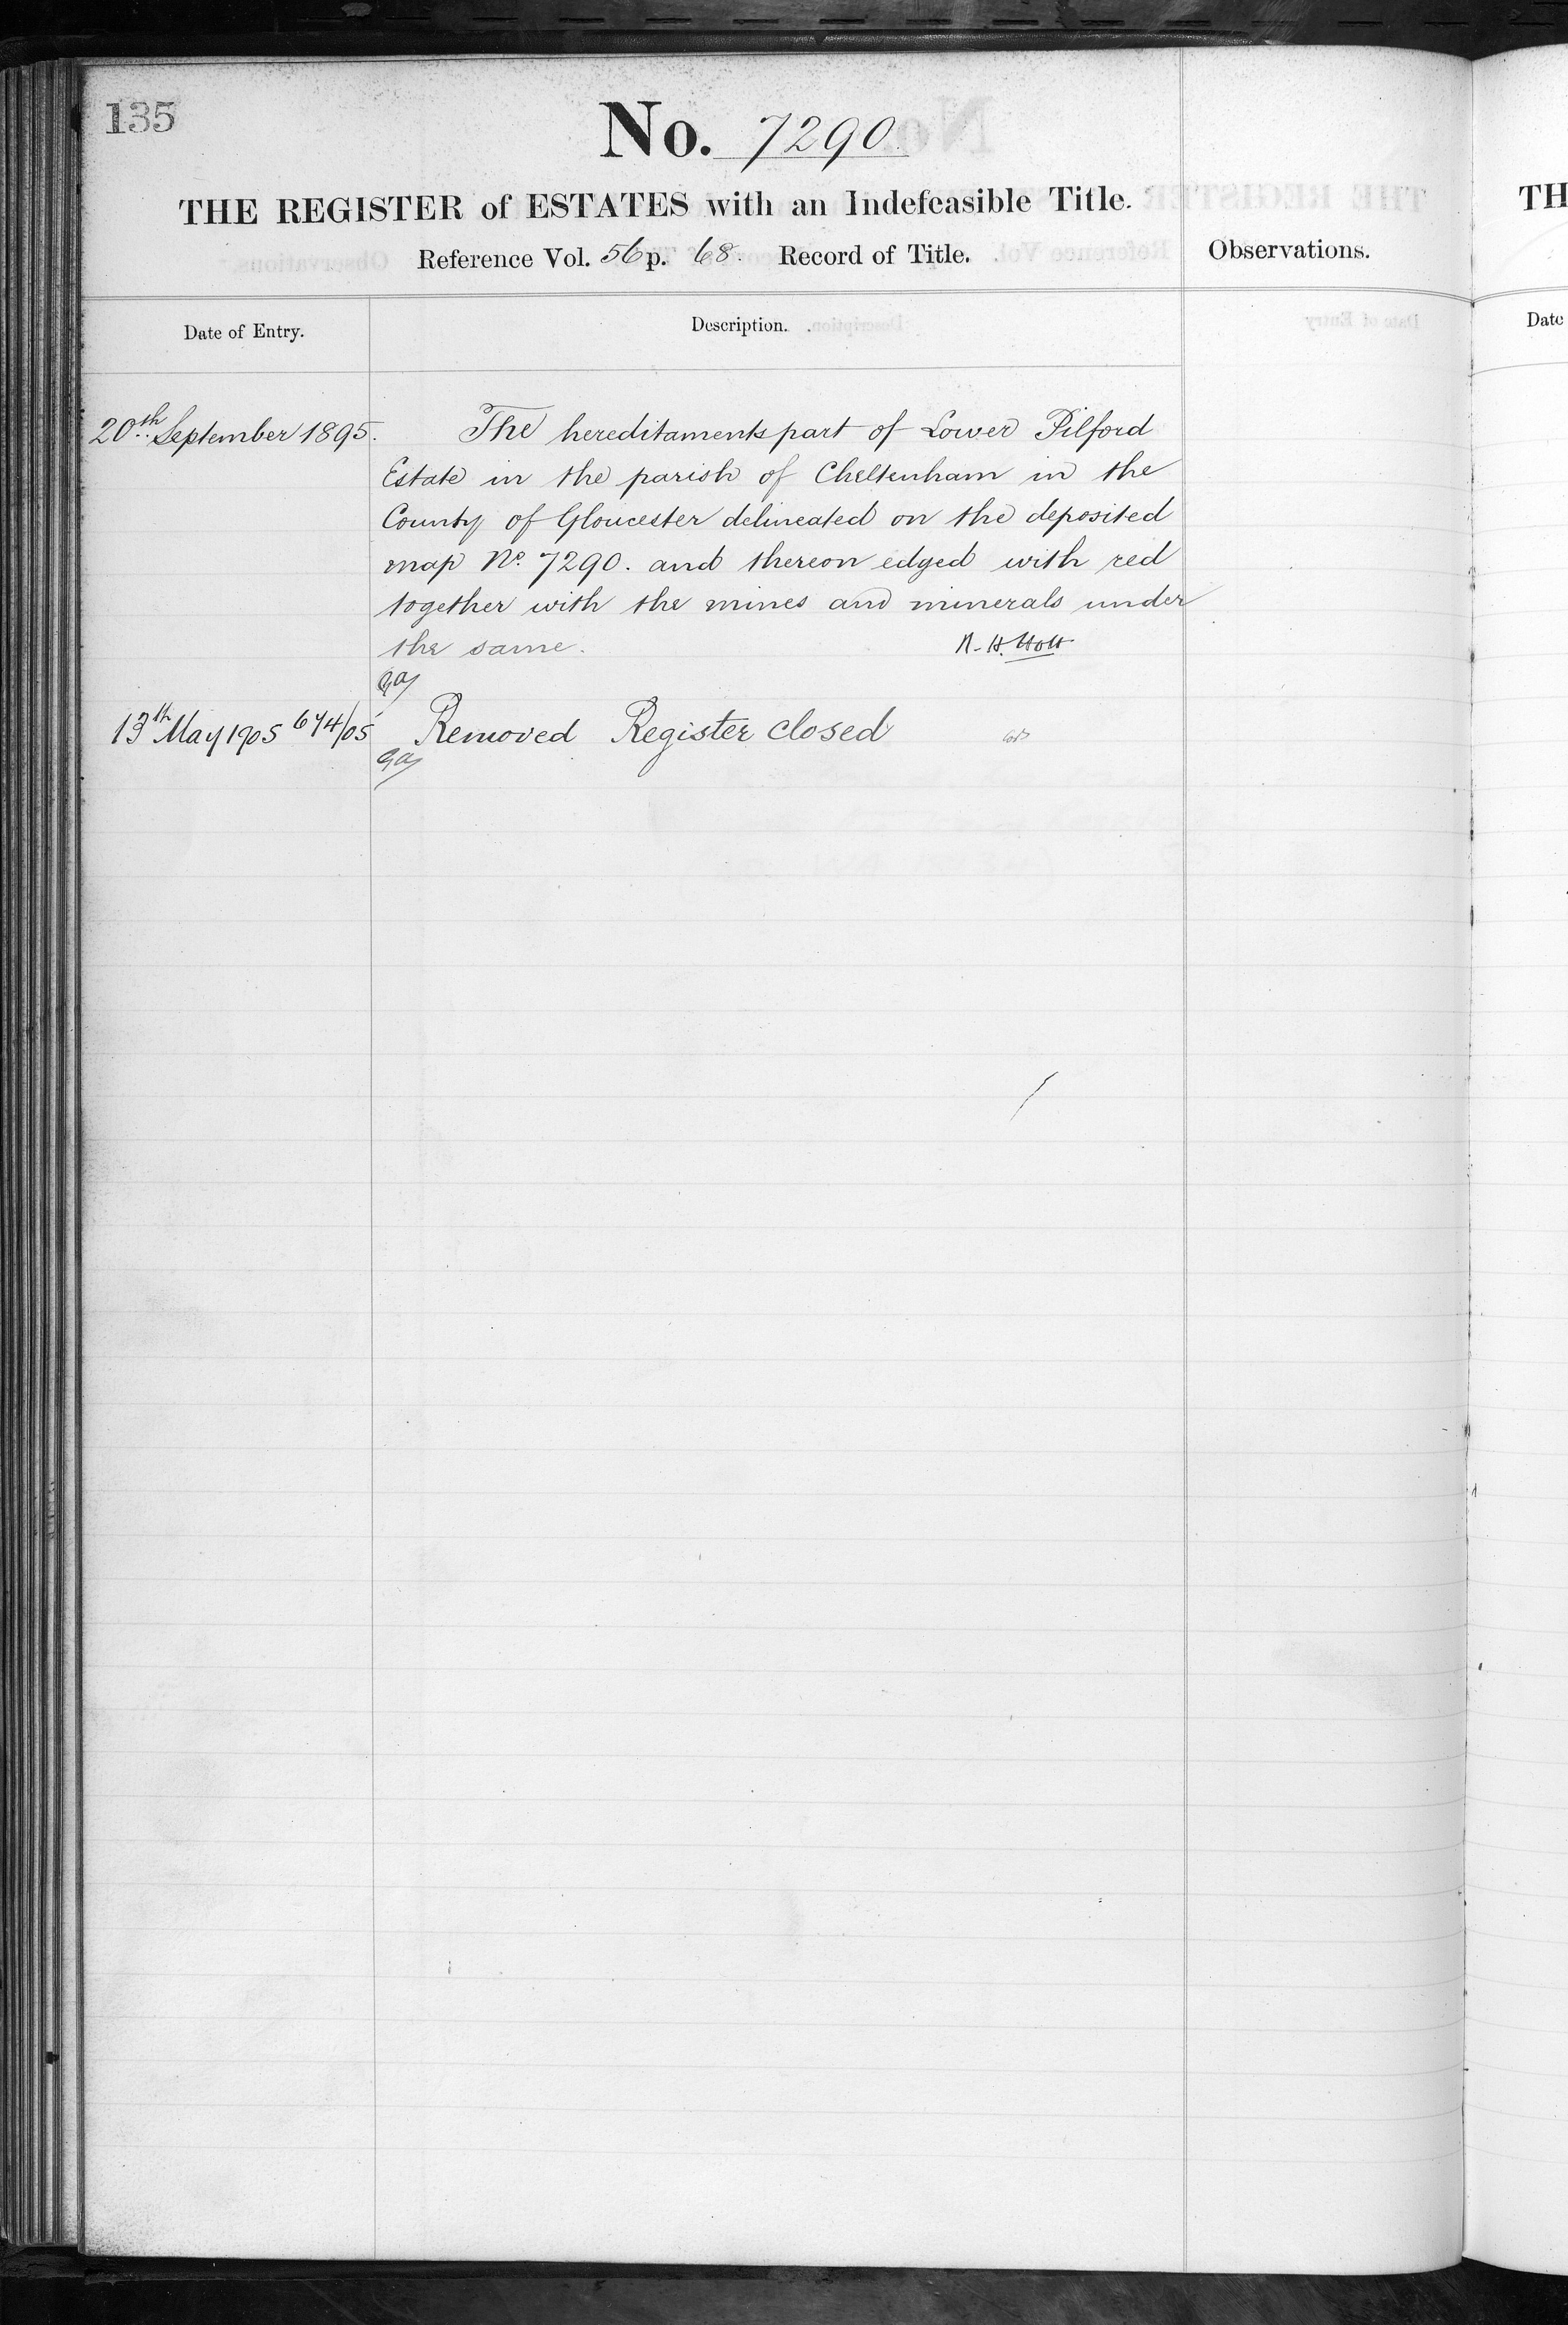 135
No. 7290.
THE REGISTER of ESTATES with an Indefeasible Title.
Reference Vol. 56 p. 68. Record of Title.
Observations.
Date of Entry.
Description.
20th September 1895.
The hereditaments part of Lower Pilford
Estate in the parish of Cheltenham in the
County of Gloucester delineated on the deposited
map No. 7290. and thereon edged with red
together with the mines and minerals under
the same.
H. Holt
13th May 1905 674/05
Removed Register closed
TH
Date